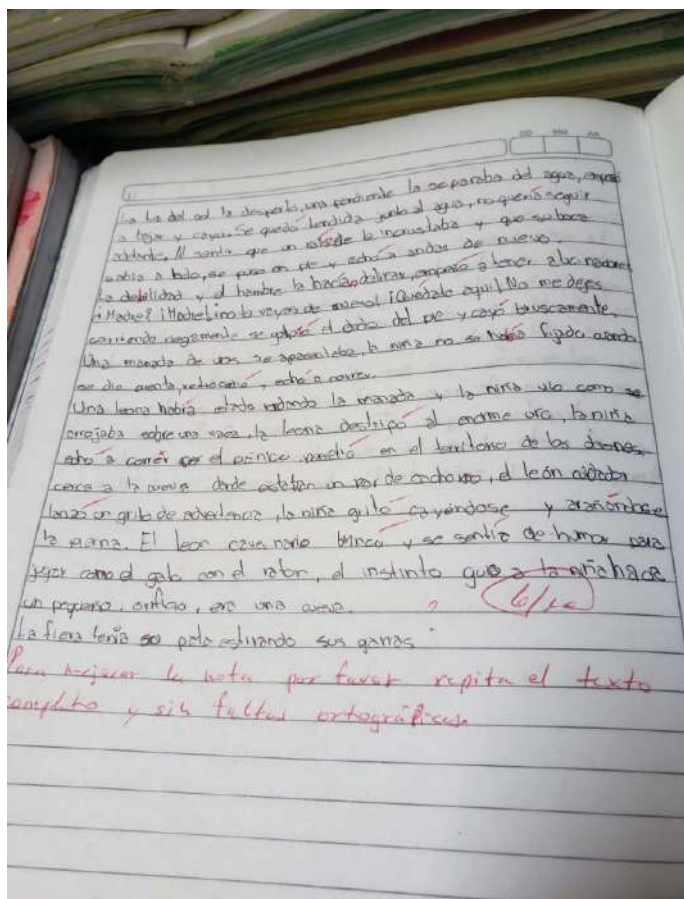 DD MM AA
La luz del sol la despertó, una pendiente la separaba del agua, empezó
a bajar y cayo. Se quedó tendida junto al agua, no quería seguir
adelante. Al sentir que un la incrustaba y que su boca
sabía a lodo, se puso en pie y echó a andar de nuevo,
La debilidad y el hambre la hacían delirar, empezo a tener alucinaciones
¡Madre! ¡Madre! ¡no te vayas de nuevo! ¡Quédate aquí! No me dejes
corriendo ciegamente se golpeó el dedo del pie y cayó bruscamente,
Una manada de uros se apacentaba, la niña no se había fijado cuando
se dio cuenta, retrocedió, echó a correr.
Una leona había estado rodando la manada y la niña vio como se
arrojaba sobre una vaca, la leona destripó al enorme uro, la niña
echó a correr por el pánico en el territorio de los leones,
cerca a la cueva donde estaban un par de cachorros, el león cuidador
lanzó un grito de advertencia, la niña gritó cayéndose y arañándose
la pierna. El leon cavernario brincó y se sentía de humor para
jugar como el gato con el raton, el instinto guio a la niña hacia
un pequeño, orificio, era una cueva. ?
La fiera tenía su pata estirando sus garras.
Para mejorar la nota por favor repita el texto
completo y sin faltas ortográficas